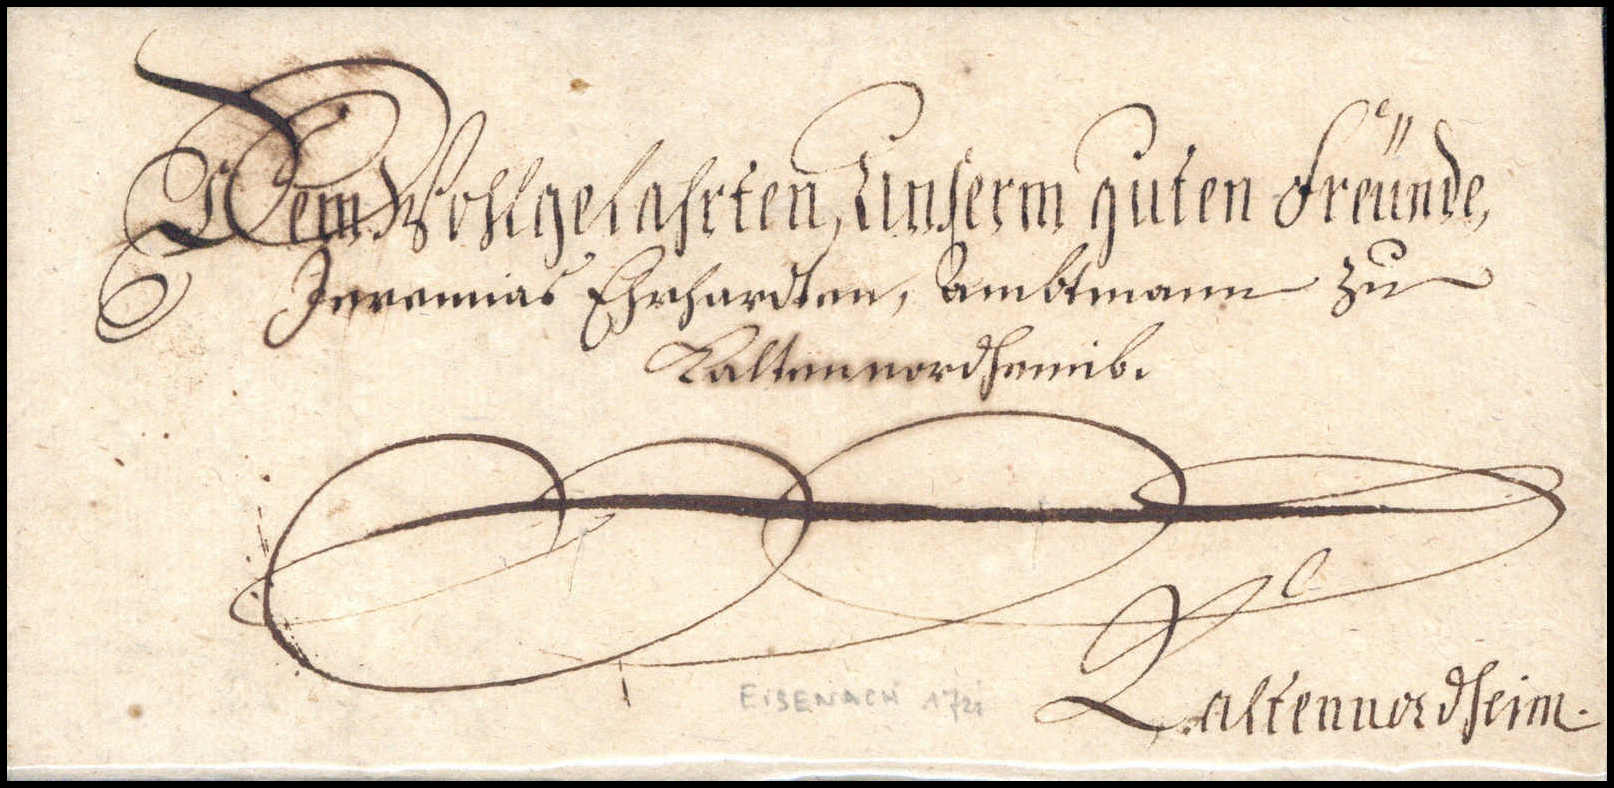 Dem Wohlgelahrten, Unserm guten Freünde,
Jeremias Ehrhardten, Ambtmann zu
Kaltennordheimb.
EISENACH
Kaltennordheim.